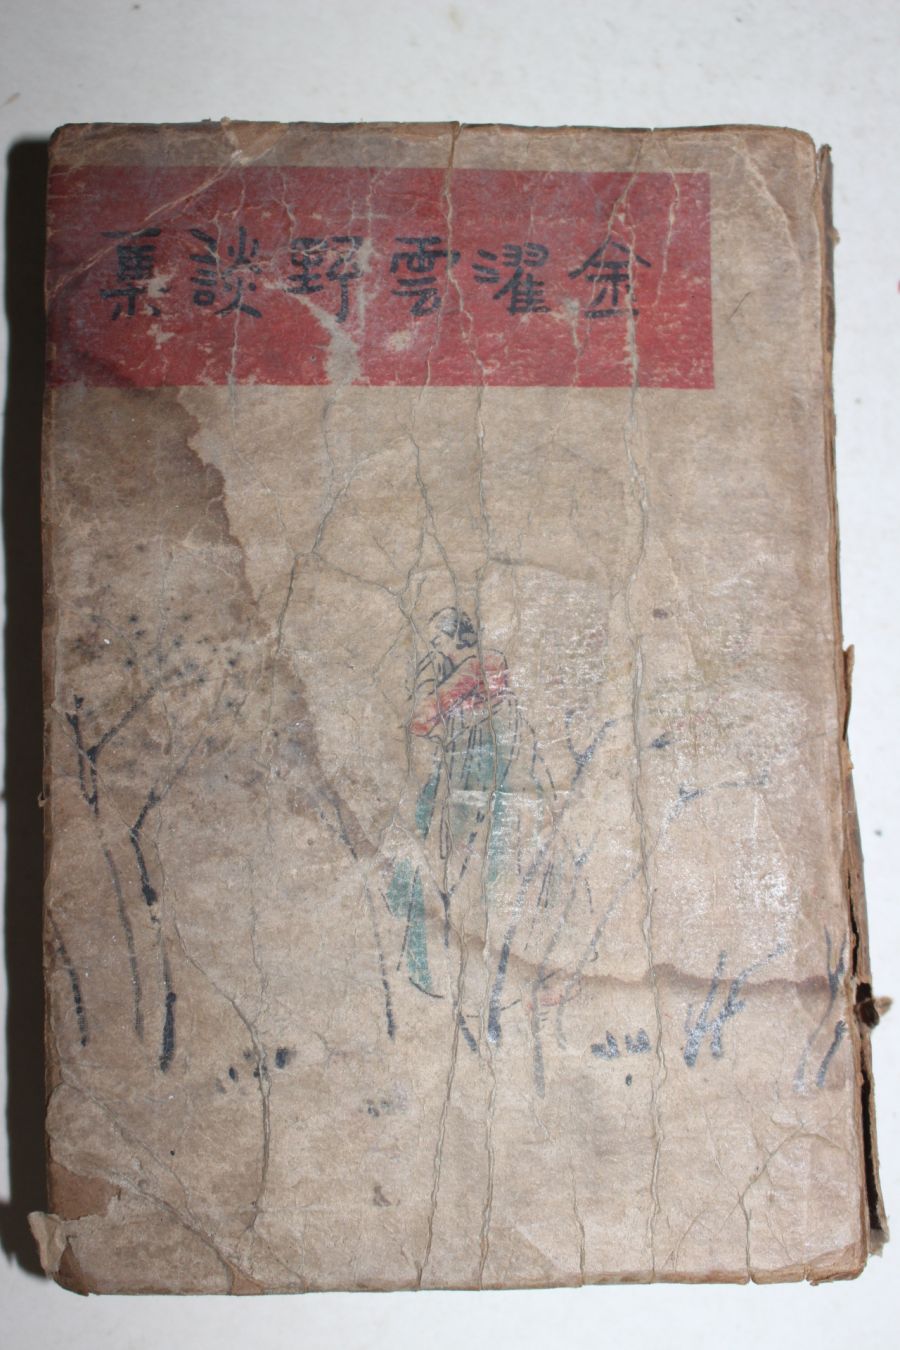 金濯雲野談集